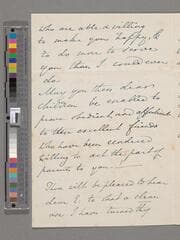 who are able & willing
to make you happy, &
to do more to serve
you than I could ever
do.
May you three dears
children be enabled to
prove obedient, and affectionate
to those excellent friends
who have been rendered
willing to act the part of
parents to you.
You will be pleased to hear
dear E. to that a clean
we I have